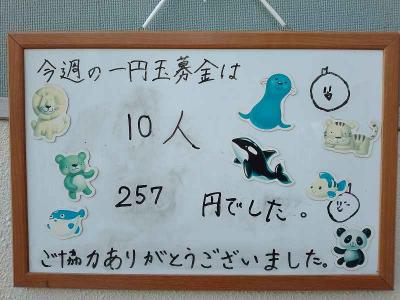 今週の一円玉募金は
10人
257 円でした。
ご協力ありがとうございました。